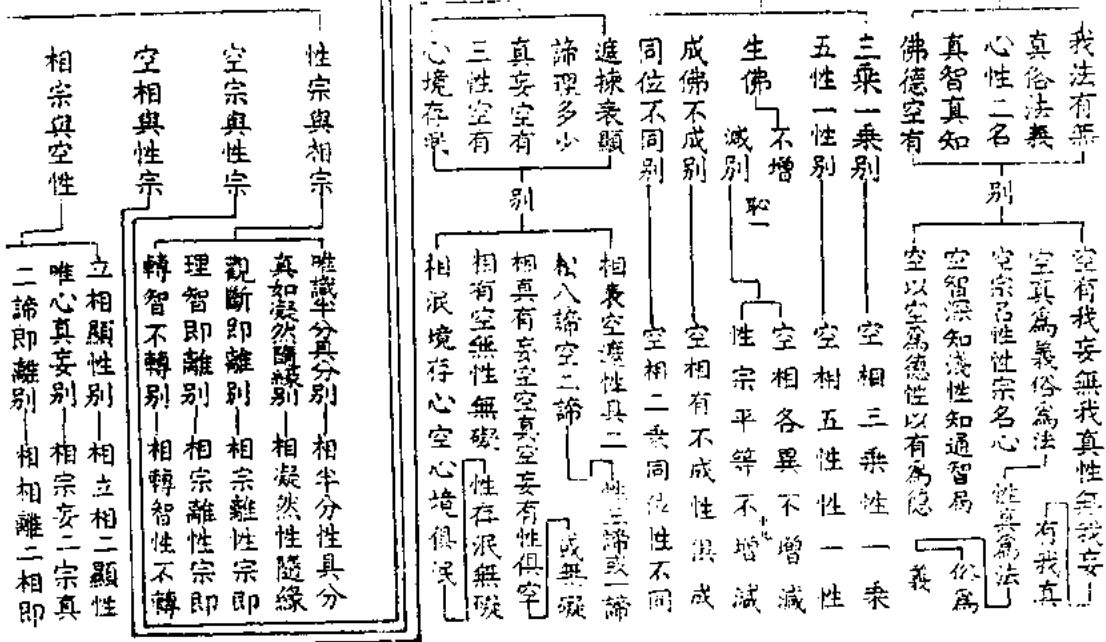 我法有無
真俗法義
心性二名
真智真知
佛德空有
別
空有我妄無我真性無我妄
有我真
空真為義俗為法
性真為法
俗為義
空宗名性性宗名心
空智深知淺性知通智局
空以空為德性以有為德
三乘一乘別
空相三乘性一乘
五性一性別
空相五性性一性
生佛
不增
減別
空相各異不增減
性宗平等不增減
成佛不成別
空相有不成性俱成
同位不同別
空相二乘同位性不同
遮揀表顯
諦理多少
真妄空有
三性空有
心境存泯
別
相表空遮性具二
相八諦空二諦
性三諦或一諦
或無礙
相真有妄空空真空妄有性俱空
相有空無性無礙
性存泯無礙
相泯境存心空心境俱泯
性宗與相宗
空宗與性宗
空相與性宗
相宗與空性
唯識半分具分別
相半分性具分
真如凝然隨緣別
相凝然性隨緣
觀斷即離別
相宗離性宗即
理智即離別
相宗離性宗即
轉智不轉別
相轉智性不轉
立相顯性別
相立相二顯性
唯心真妄別
相宗妄二宗真
二諦即離別
相相離二相即